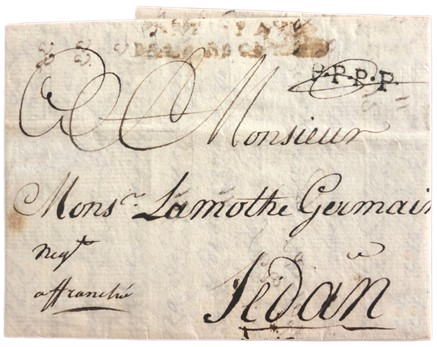 P.P.P.P.
A Monsieur
Mons.r Lamothe Germain
Neg.t
affranchie
Sedan